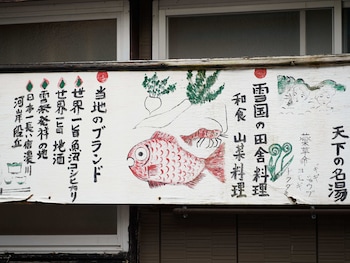 天下の名湯
雪国の田舎料理
和食 山菜料理
当地のブランド
世界一旨 魚沼コシヒカリ
世界一旨 地酒
雪祭発祥の地
日本一長い信濃川
河岸段丘